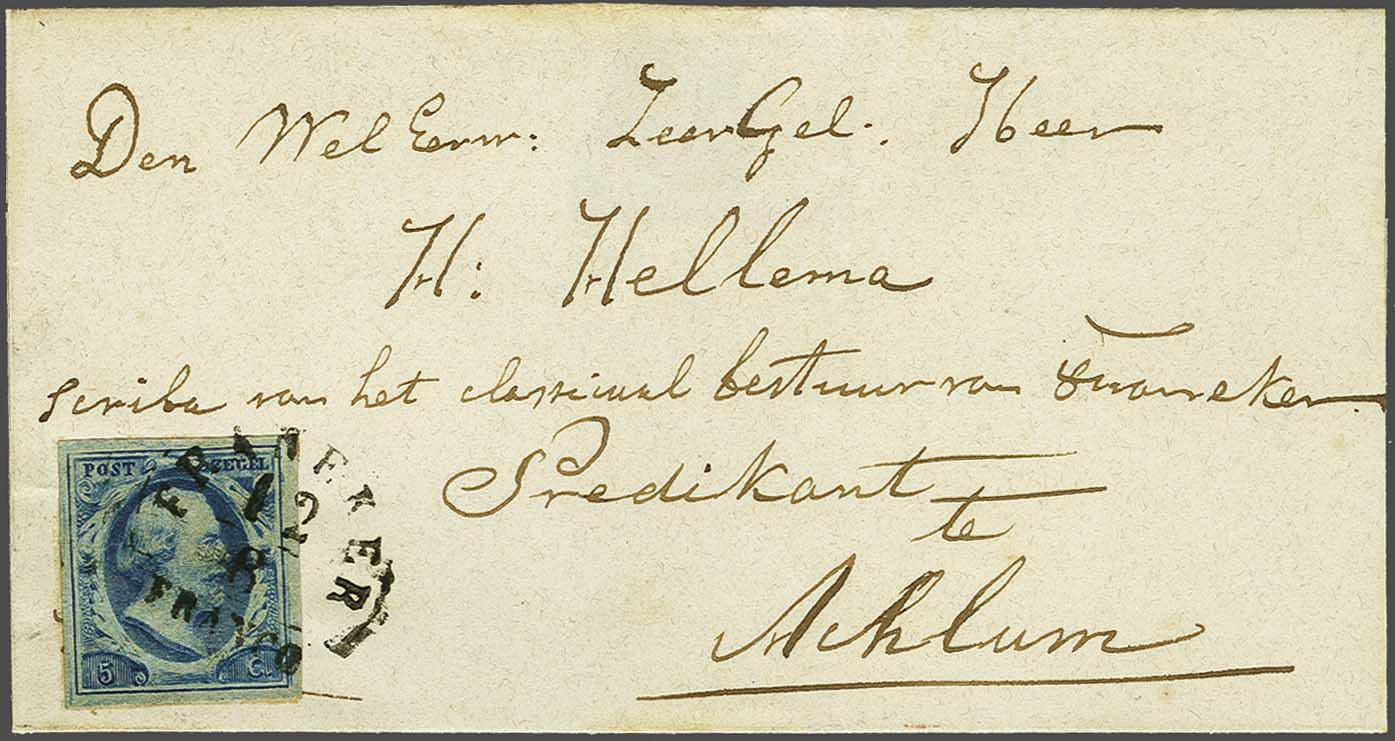 Den Wel Eerw: ZeerGel. Heer
H: Hellema
Scriba van het classicaal bestuur van Franeker
Predikant
te
Achlum
POST ZEGEL
5 C.
FRANEKER
FRANCO